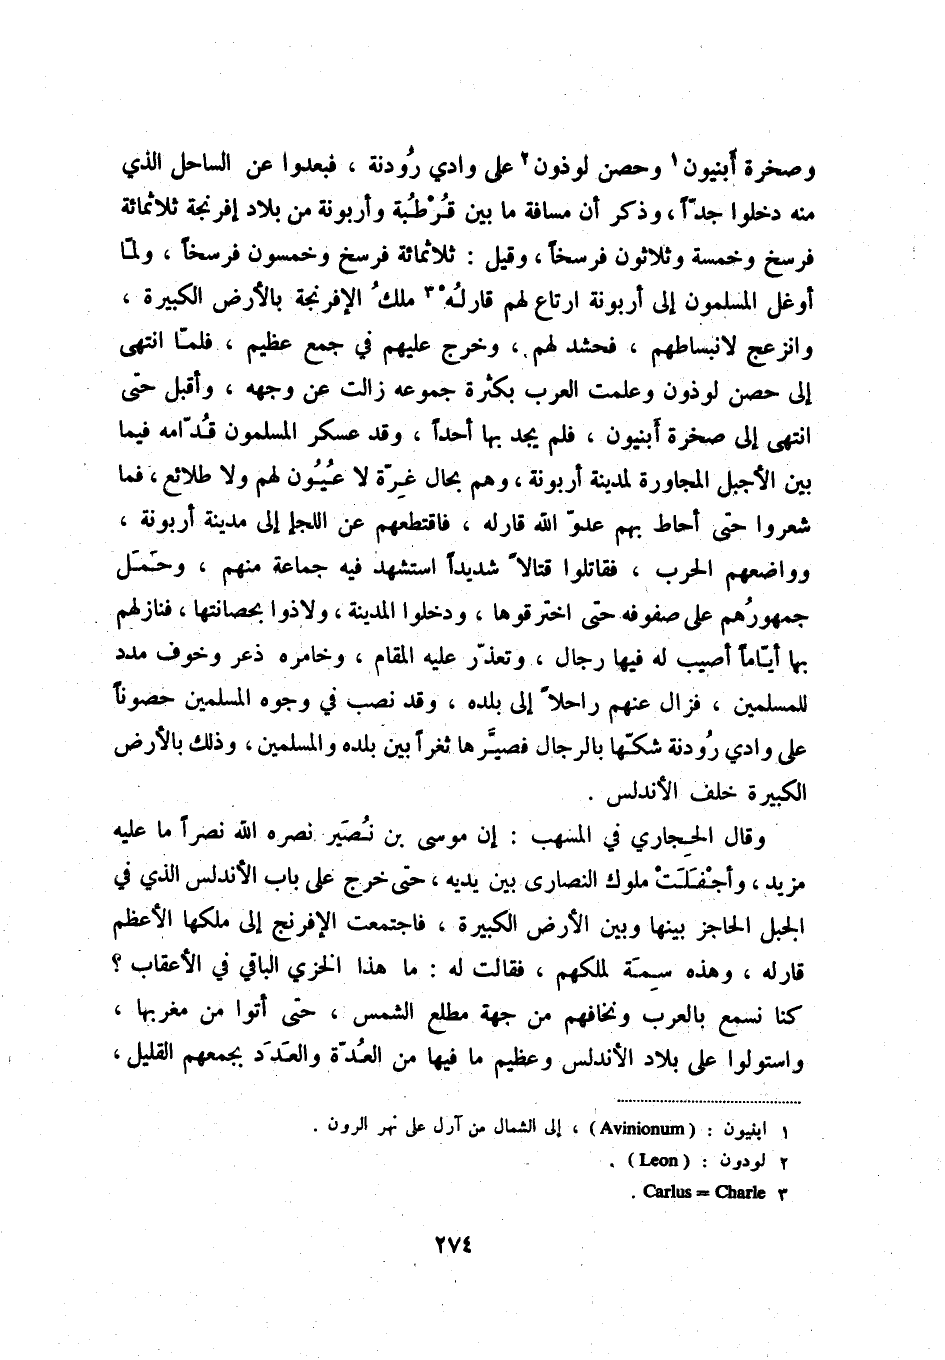 وصخرة أَبنيون١ وحصن لوذون٢ على وادي رُودنة ، فبعدوا عن الساحل الذي
منه دخلوا جدّاً ، وذكر أن مسافة ما بين قُرْطُبة وأربونة من بلاد إفرنجة ثلاثمائة
فرسخ وخمسة وثلاثون فرسخاً ، وقيل : ثلاثمائة فرسخ وخمسون فرسخاً ، ولمّا
أوغل المسلمون إلى أربونة ارتاع لهم قارلُهْ٣ ملكُ الإفرنجة بالأرض الكبيرة ،
وانزعج لانبساطهم ، فحشد لهم ، وخرج عليهم في جمع عظيم ، فلمّا انتهى
إلى حصن لوذون وعلمت العرب بكثرة جموعه زالت عن وجهه ، وأقبل حتّى
انتهى إلى صخرة أَبنيون ، فلم يجد بها أحداً ، وقد عسكر المسلمون قُدّامه فيما
بين الأجبل المجاورة لمدينة أربونة ، وهم بحال غِرّة لا عُيُون لهم ولا طلائع ، فما
شعروا حتّى أحاط بهم عدوّ الله قارله ، فاقتطعهم عن اللجإ إلى مدينة أربونة ،
وواضعهم الحرب ، فقاتلوا قتالاً شديداً استشهد فيه جماعة منهم ، وحَمَل
جمهورُهم على صفوفه حتّى اخترقوها ، ودخلوا المدينة ، ولاذوا بحصانتها ، فنازلهم
بها أيّاماً أصيب له فيها رجال ، وتعذّر عليه المقام ، وخامره ذعر وخوف مدد
للمسلمين ، فزال عنهم راحلاً إلى بلده ، وقد نصب في وجوه المسلمين حصوناً
على وادي رُودنة شكّها بالرجال فصيَّرها ثغراً بين بلده والمسلمين ، وذلك بالأرض
الكبيرة خلف الأندلس .
وقال الحِجاري في المسهب : إن موسى بن نُصَير نصره الله نصراً ما عليه
مزيد ، وأجْفَلَتْ ملوك النصارى بين يديه ، حتّى خرج على باب الأندلس الذي في
الجبل الحاجز بينها وبين الأرض الكبيرة ، فاجتمعت الإفرنج إلى ملكها الأعظم
قارله ، وهذه سِمَة لملكهم ، فقالت له : ما هذا الخزي الباقي في الأعقاب ؟
كنا نسمع بالعرب ونخافهم من جهة مطلع الشمس ، حتّى أتوا من مغربها ،
واستولوا على بلاد الأندلس وعظيم ما فيها من العُدّة والعَدَد بجمعهم القليل ،
١ ابنيون : (Avinionum) ، إلى الشمال من آرل على نهر الرون .
٢ لودون : (Leon) .
٣ Carlus = Charle .
٢٧٤